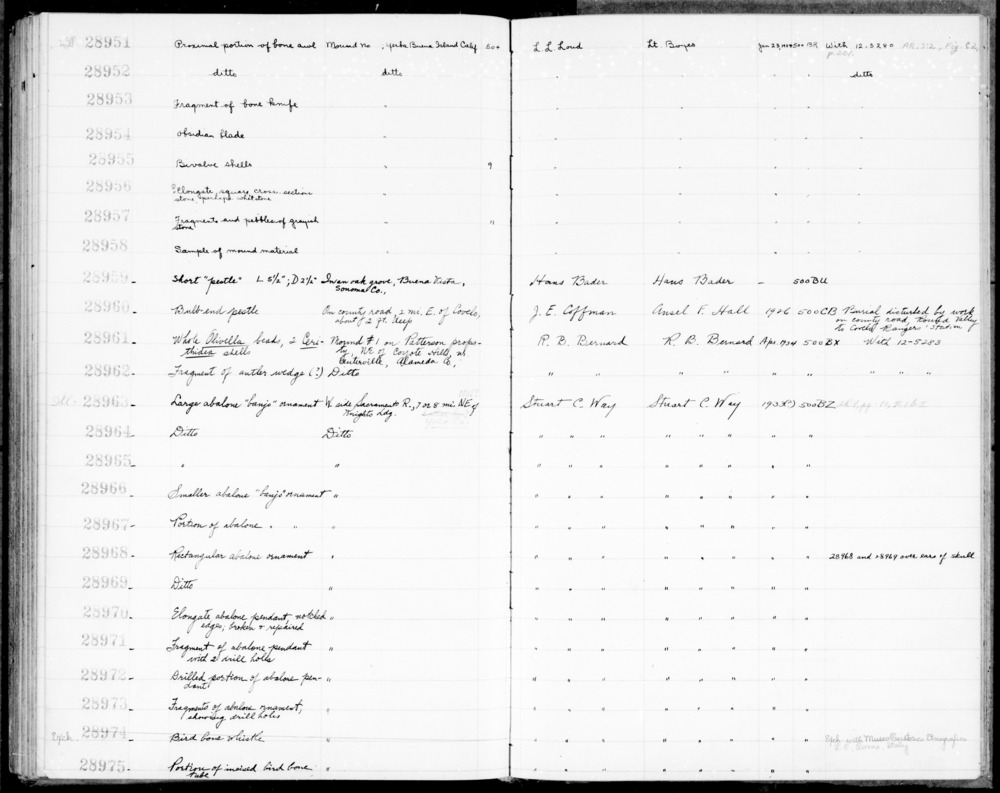 28951 Proximal portion of bone awl Mound No , Yerba Buena Island Calif L L Loud Lt. Boyes Jan 23, 500 BR With 12-3280
28952 ditto ditto " " " " ditto
28953 Fragment of bone knife "
28954 Obsidian blade "
28955 Bivalve shells " 9
28956 Elongate, square cross-section "
stone, perhaps whetstone
28957 Fragments and pebbles of grayish " "
stone
28958 Sample of mound material "
28959 Short "pestle" L 5½"; D 2½" In an oak grove, Buena Vista, Hans Bader Hans Bader – 500BU
Sonoma Co.,
28960 Bulb-end pestle On county road, 2 mi. E. of Covelo, J. E. Coffman Ansel F. Hall 1926 500CB Burial disturbed by work
about 2 ft. deep on county road, Round Valley
to Covelo Rangers' Station
28961 Whole Olivella bead, 2 Ceri- Mound #1 on Patterson proper- R. B. Bernard R. B. Bernard Apr. 1934 500BX With 12-5283
thidea shells ty, NE of Coyote Hills, nr
Centerville, Alameda Co.,
28962 Fragment of antler wedge (?) Ditto " " " " " " " " "
28963 Large abalone "banjo" ornament W. side Sacramento R., 7 or 8 mi. NE of Stuart C. Way Stuart C. Way 193 500BZ
Knights Ldg.
28964 Ditto Ditto " " " " " " " "
28965 " " " " " " " " " "
28966 Smaller abalone "banjo" ornament " " " " " " " " "
28967 Portion of abalone " " " " " " " " " " "
28968 Rectangular abalone ornament " " " " " " " " " 28968 and 28969 over ears of skull
28969 Ditto " " " " " " " " "
28970 Elongate abalone pendant, notched " " " " " " " " "
edges; broken + repaired
28971 Fragment of abalone pendant " " " " " " " " "
with 2 drill holes
28972 Drilled portion of abalone pen- " " " " " " " " "
dant
28973 Fragments of abalone ornament, " " " " " " " " "
showing drill holes
Exch. 28974 Bird bone whistle " " " " " " " " " Exch with Museo
28975 Portion of incised bird bone " " " " " " " " "
tube